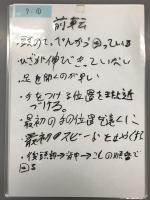 7-①
前転
・頭のてっぺんから回っている
・ひざが伸びきっていない
・足を開くのが早い
・手をつける位置をまた近
づける。
・最初の手の位置を遠くに
・最初のスピードを
・後頭部→背中→こしの順番で
回る